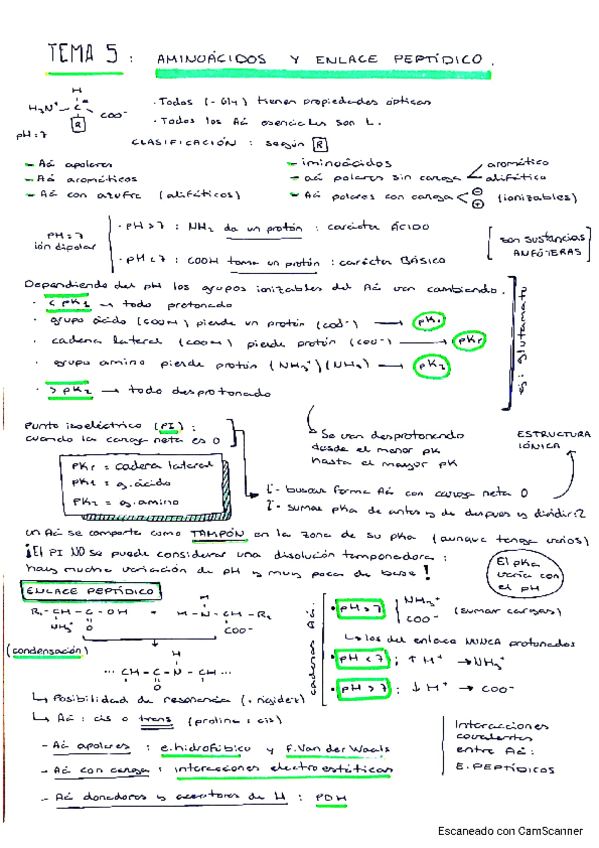 TEMA 5: AMINOÁCIDOS Y ENLACE PEPTÍDICO.
H
H₃N⁺ - C - COO⁻
R
pH = 7
· Todos (- Gly) tienen propiedades ópticas
· Todos los Aá esenciales son L.
CLASIFICACIÓN: según R
- Aá apolares
- Aá aromáticos
- Aá con azufre (alifáticos)
- iminoácidos
- aá polares sin carga < aromático
alifático
- Aá polares con carga < ⊖ ⊕ (ionizables)
pH = 7
ión dipolar
· pH > 7 : NH₂ da un protón : carácter ÁCIDO
· pH < 7 : COOH toma un protón : carácter BÁSICO
son sustancias
ANFÓTERAS
Dependiendo del pH los grupos ionizables del Aá van cambiando.
· < pK₁ → todo protonado
· grupo ácido (COOH) pierde un protón (COO⁻) → pK₁
· cadena lateral (COOH) pierde protón (COO⁻) → pKr
· grupo amino pierde protón (NH₃⁺)(NH₂) → pK₂
· > pK₂ → todo desprotonado
ej: glutamato
Punto isoeléctrico (PI) :
cuando la carga neta es 0
pKr = cadena lateral
pK₁ = g. ácido
pK₂ = g. amino
Se van desprotonando
desde el menor pK
hasta el mayor pK
ESTRUCTURA
IÓNICA
1º- buscar forma Aá con carga neta 0
2º- sumar pKa de antes y de después y dividir : 2
un Aá se comporta como TAMPÓN en la zona de su pKa (aunque tenga varios)
¡El PI NO se puede considerar una disolución tamponadora :
hay mucha variación de pH y muy poca de base!
El pKa
varía con
el pH
ENLACE PEPTÍDICO
R₁ - CH - C - OH + H - N - CH - R₂
NH₃⁺ O H COO⁻
(condensación)
··· CH - C - N - CH ···
O H
↳ Posibilidad de resonancia (+ rigidez)
↳ Aá : cis o trans (prolina : cis)
- Aá apolares : e. hidrofóbico y F. Van der Waals
- Aá con carga : interacciones electroestáticas
- Aá donadores y aceptores de H : PDH
cadenas Aá.
· pH = 7 NH₃⁺
COO⁻ (sumar cargas)
↳ los del enlace NUNCA protonados
· pH < 7 : ↑ H⁺ → NH₃⁺
· pH > 7 : ↓ H⁺ → COO⁻
Interacciones
covalentes
entre Aá :
E. PEPTÍDICOS
Escaneado con CamScanner